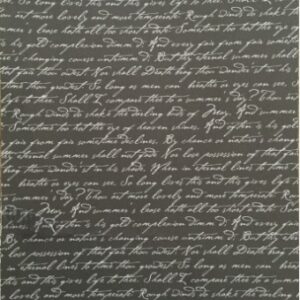 can see. So long lives this and this gives life to thee. Shall
art more lovely and more temperate Rough winds do shake the
lease hath all too short a date Sometime too hot the eye
is his gold complexion dimm'd. And every fair from fair sometime
is changing course untrimm'd. But thy eternal summer shall
that fair thou owest. Nor shall Death brag thou wander'st in his
time thou growest So long as men can breathe or eyes can see.
life to thee. Shall I compare thee to a summer's day?
Rough winds do shake the darling buds of May, And summer
Sometime too hot the eye of heaven shines, And often is his
fair from fair sometime declines, By chance or nature's
thy eternal summer shall not fade Nor lose possession of that fair
thou wander'st in his shade, When in eternal lines to time
breathe or eyes can see. So long lives this and this gives
summer's day? Thou art more lovely and more temperate Rough
of May, And summer's lease hath all too short a date
shines, And often is his gold complexion dimm'd, And
By chance or nature's changing course untrimm'd But thy
lose possession of that fair thou owest Nor shall Death brag
eternal lines to time thou growest So long as men can breathe
this gives life to thee. Shall I compare thee to a summer's
more temperate Rough winds do shake